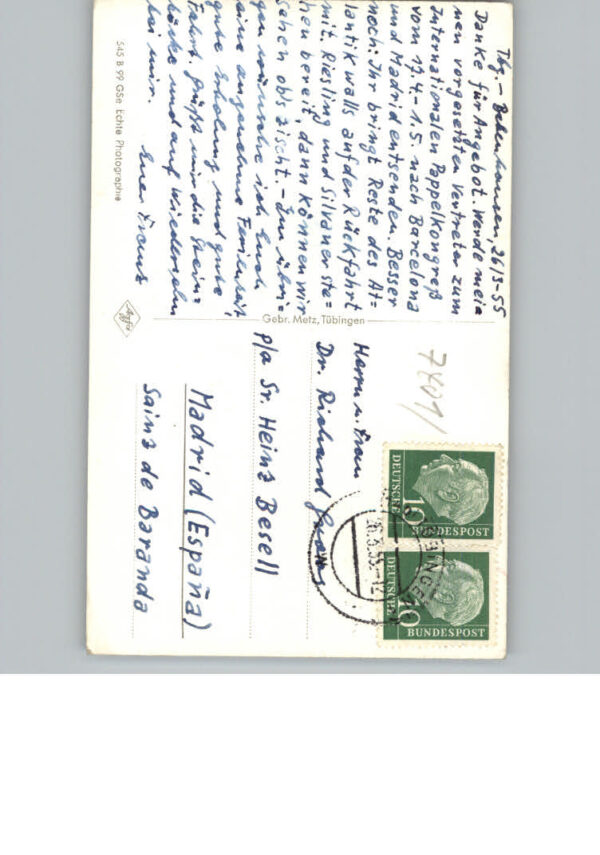 Tbg.-Bebenhausen, 26/3-55
Danke für Angebot. Werde mei-
nen vorgesetzten Vertreter zum
Internationalen Pappelkongreß
vom 19.4-1.5. nach Barcelona
und Madrid entsenden. Besser
noch: Ihr bringt Reste des At-
lantikwalls auf der Rückfahrt
mit. Riesling und Silvaner ste-
hen bereit, dann können wir
sehen ob's zischt. - Im übri-
gen wünsche ich Euch
eine angenehme Ferienzeit,
gute Erholung und gute
Fahrt. Grüßt mir die Stein-
böcke und auf Wiedersehn
bei mir.
Euer
545 B 99 GSe Echte Photographie
Agfa
Gebr. Metz, Tübingen
7401/
Herrn u. Frau
Dr. Richard
p/a Sr. Heinz Besell
Madrid (España)
Sainz de Baranda
DEUTSCHE
10
BUNDESPOST
DEUTSCHE
10
BUNDESPOST